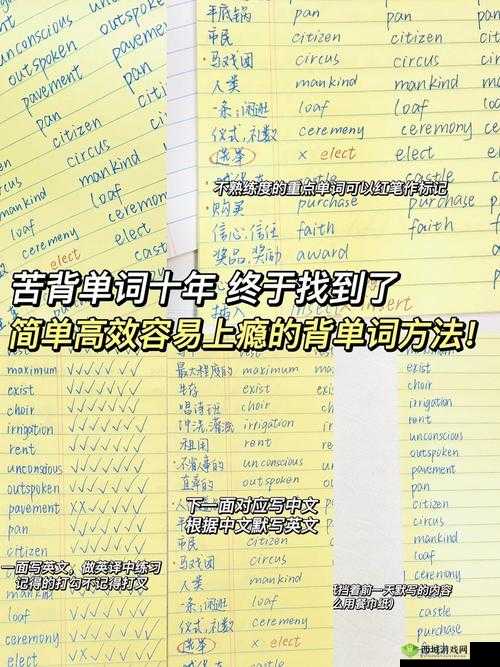 unconscious
outspoken
pavement
pan
citizen
circus
mankind
loaf
ceremeny
elect
unconscious
outspoken
pavement
pan
citizen
circus
平底锅 pan pan
市民 citizen citizen
·马戏团 circus circus
人类 mankind mankind
一条;闲逛 loaf loaf
仪式,礼数 ceremeny ceremony
选举 × elect elect
不熟练度的重点单词可以红笔作标记
castle castle
·购买 purchase purchase
信心,信任 faith faith
奖品,奖励 award
插入 insert
苦背单词十年 终于找到了
简单高效容易上瘾的背单词方法!
maximum
exist
choir
irrigation
rent
unconscious
outspoken
pavement
pan
citizen
一面写英文,做英译中练习
记得的打勾不记得打叉
loaf
ceremony
elect
castle
最大程度的 maximum maximum
生存 exist exist
唱诗班 choir choir
冲洗,灌溉 irrigation irrigation
租用 rent rent
不省事的 unconscious unconscious
直率的 outspoken outspoken
下一面对应写中文
根据中文默写英文
市民 citizen citizen
马戏团 circus circus
人类 mankind mankind
一条;闲逛 loaf loaf
仪式,礼数 ceremony
选举 elect
城堡 castle
购买 purchase
choir
irrigation
rent
unconscious
outspoken
pavement
pan
citizen
circus
mankind
挡着前一天默写的内容
么用餐巾纸)
castle
purchase
faith
西城游戏网